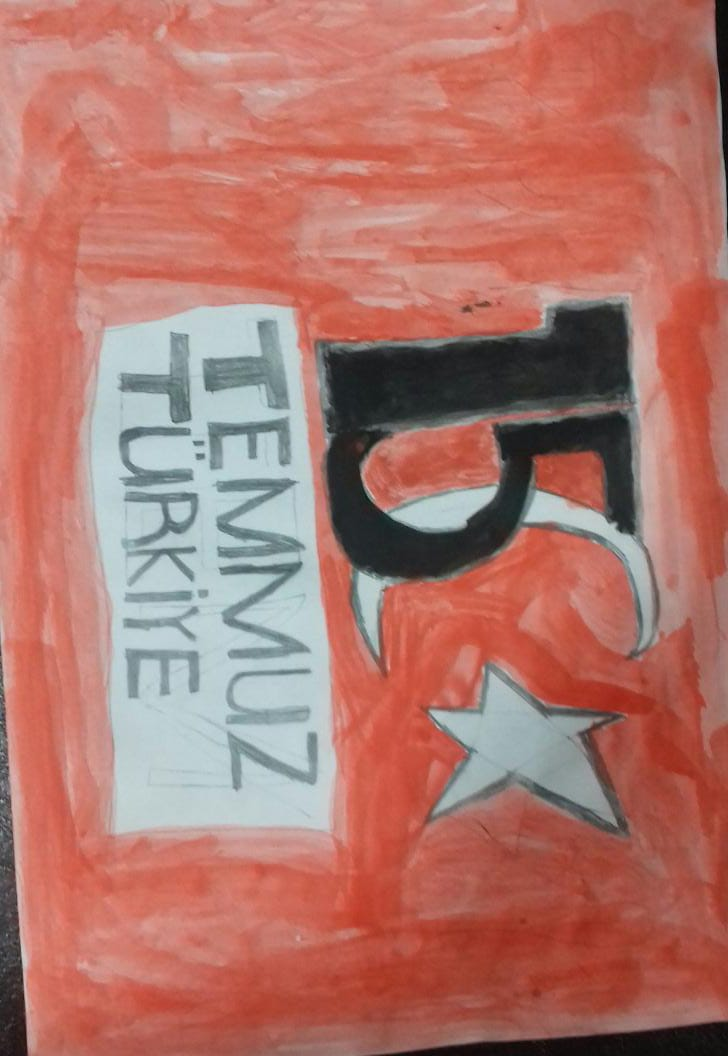 15
TEMMUZ
TÜRKİYE